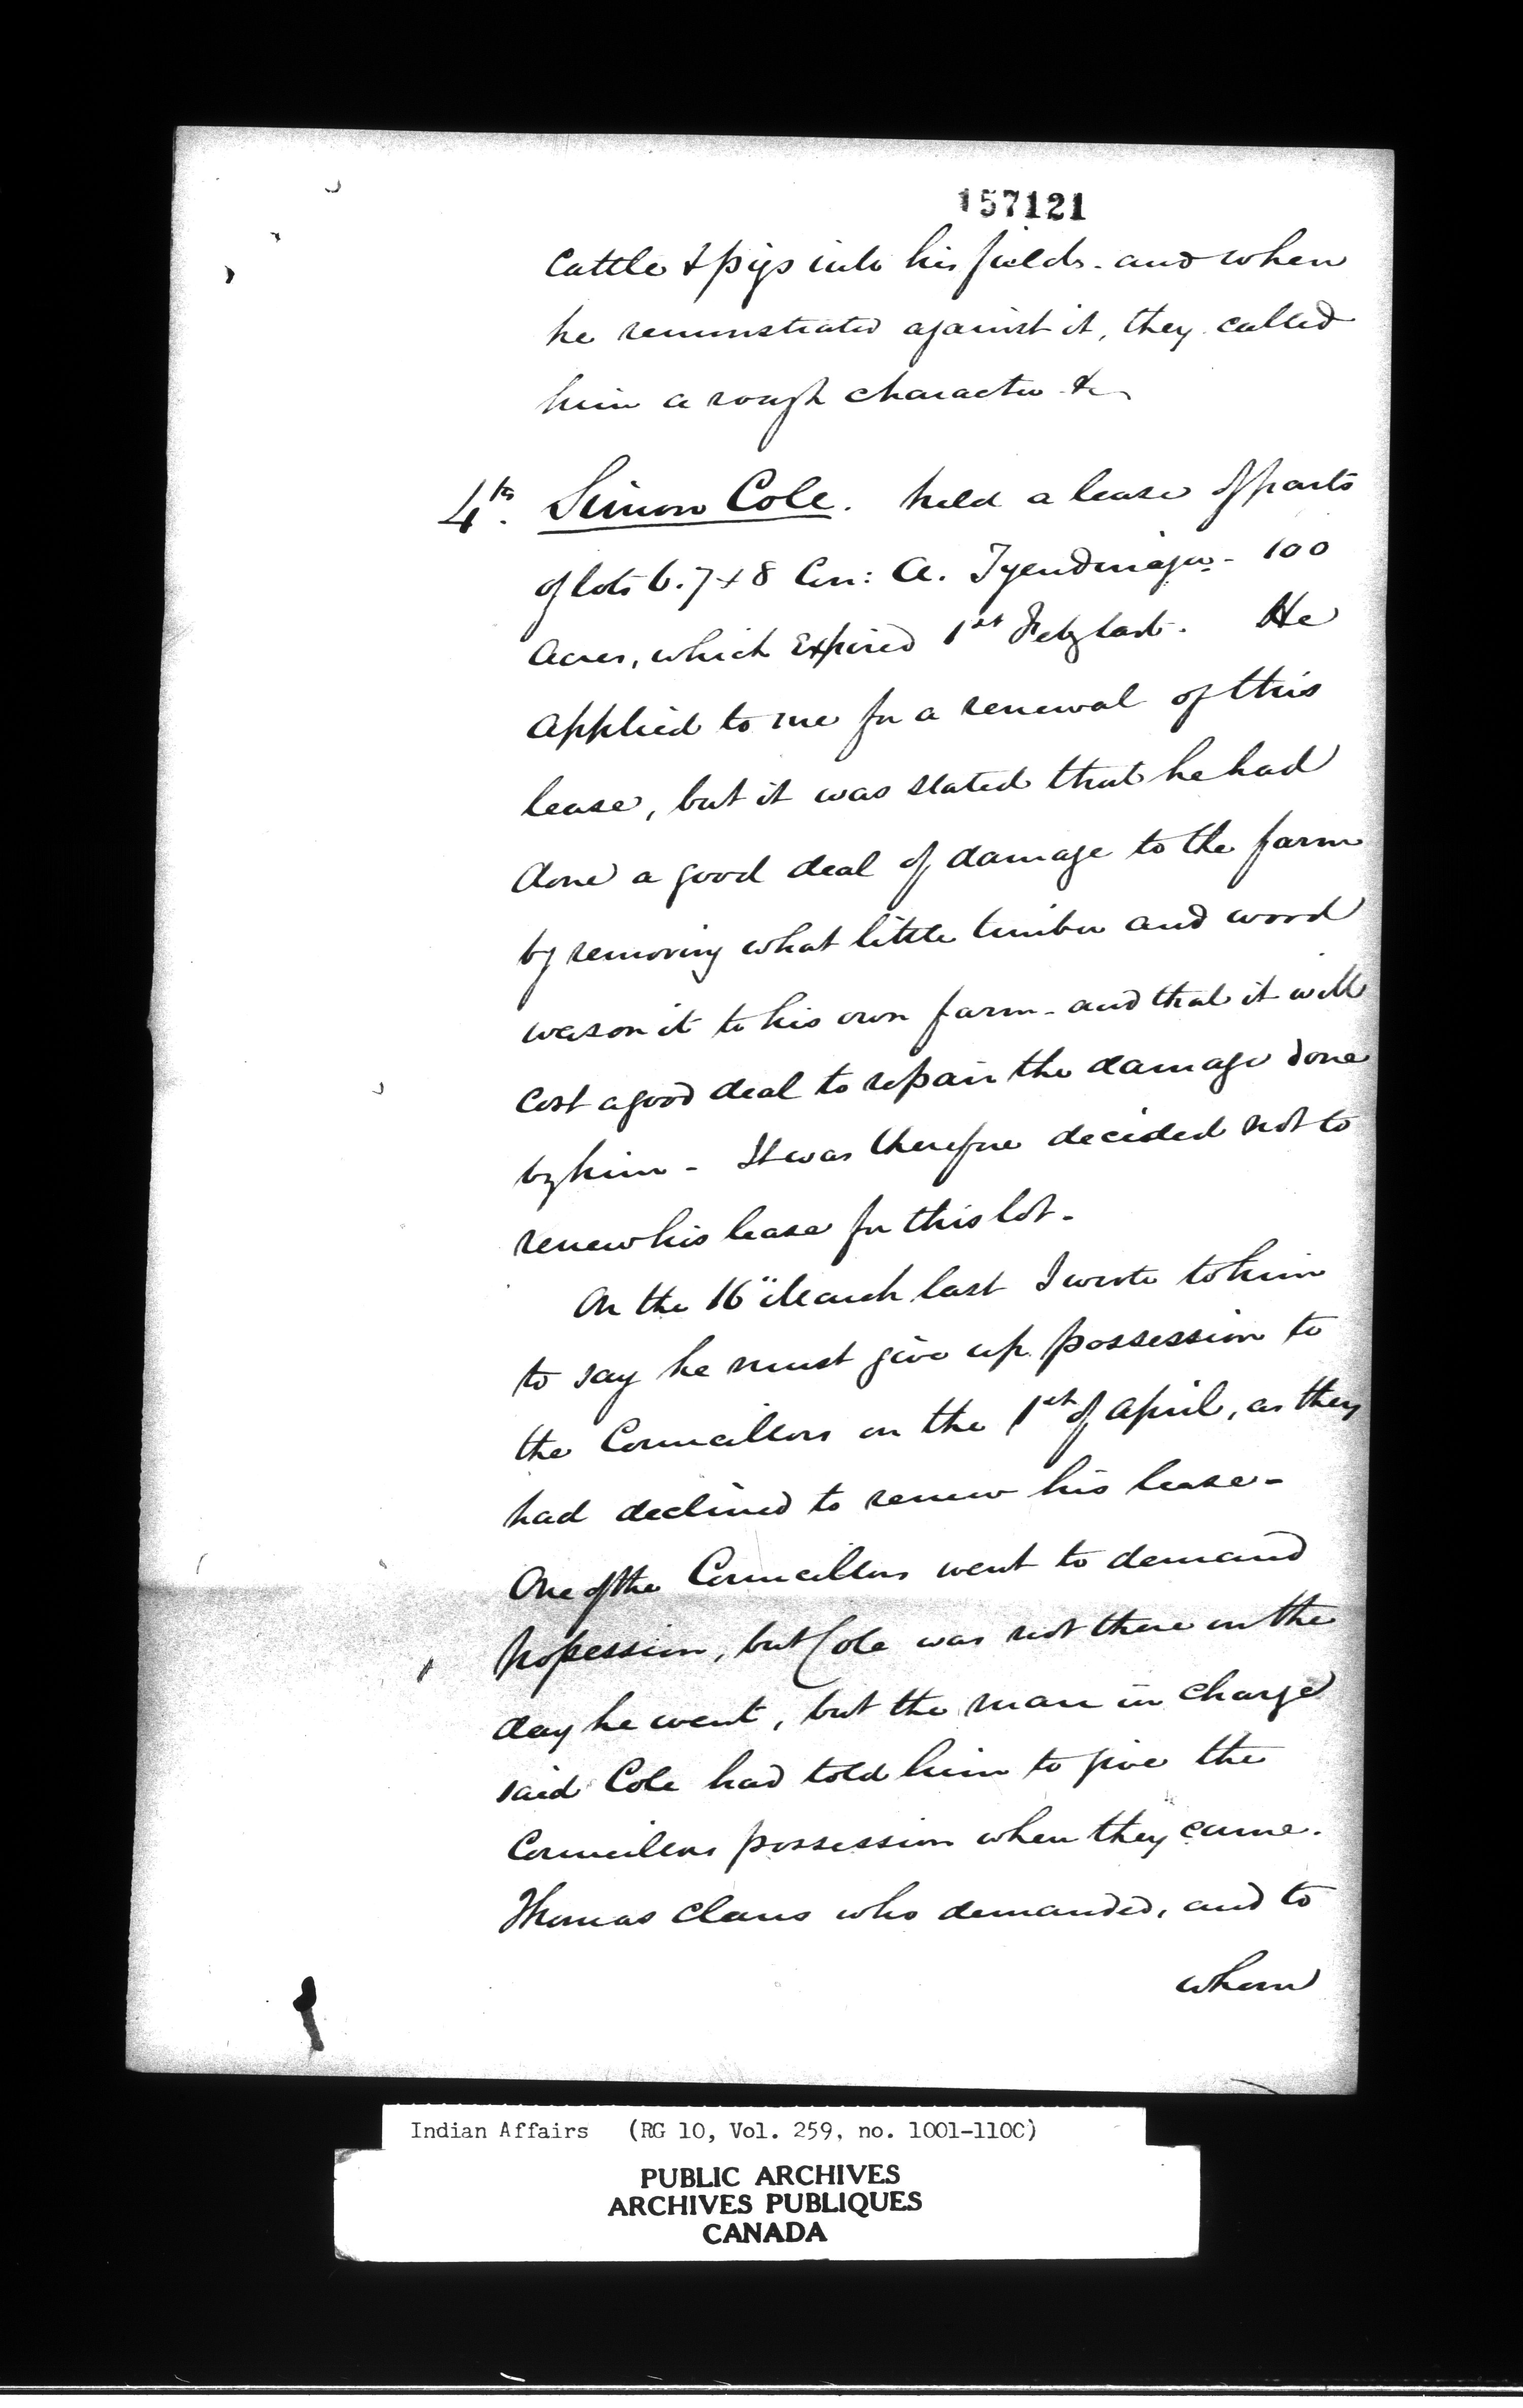 157121
Cattle & pigs into his fields - and when
he remonstrated against it, they called
him a rough character &c
4th. Simon Cole. held a lease of parts
of lots 6. 7 & 8 Con: A. Tyendinaga - 100
Acres, which Expired 1st Feby last. He
applied to me for a renewal of this
lease, but it was stated that he had
done a good deal of damage to the farm
by removing what little timber and wood
was on it to his own farm - and that it will
cost a good deal to repair the damage done
by him - It was therefore decided not to
renew his lease for this lot -
On the 16" March last I wrote to him
to say he must give up possession to
the Councillors on the 1st of April, as they
had declined to renew his lease -
One of the Councillors went to demand
possession, but Cole was not there on the
day he went, but the man in charge
said Cole had told him to give the
Councillors possession when they came.
Thomas Claus who demanded, and to
whom
Indian Affairs (RG 10, Vol. 259, no. 1001-110C)
PUBLIC ARCHIVES
ARCHIVES PUBLIQUES
CANADA